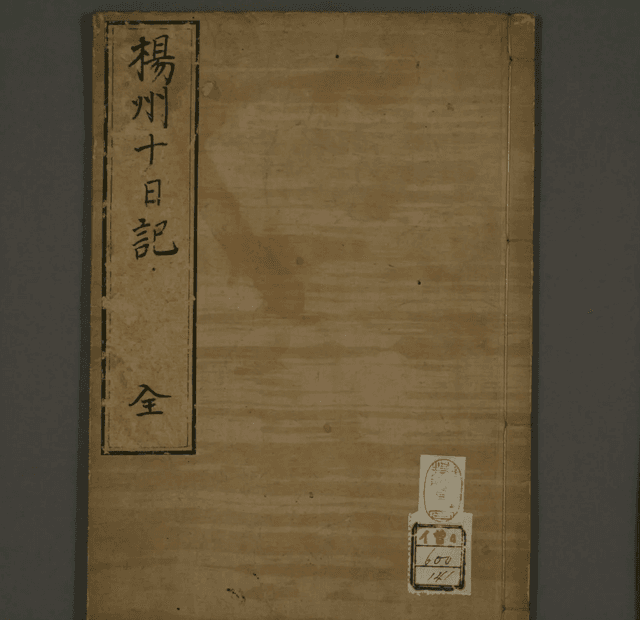 楊州十日記
全
600
141